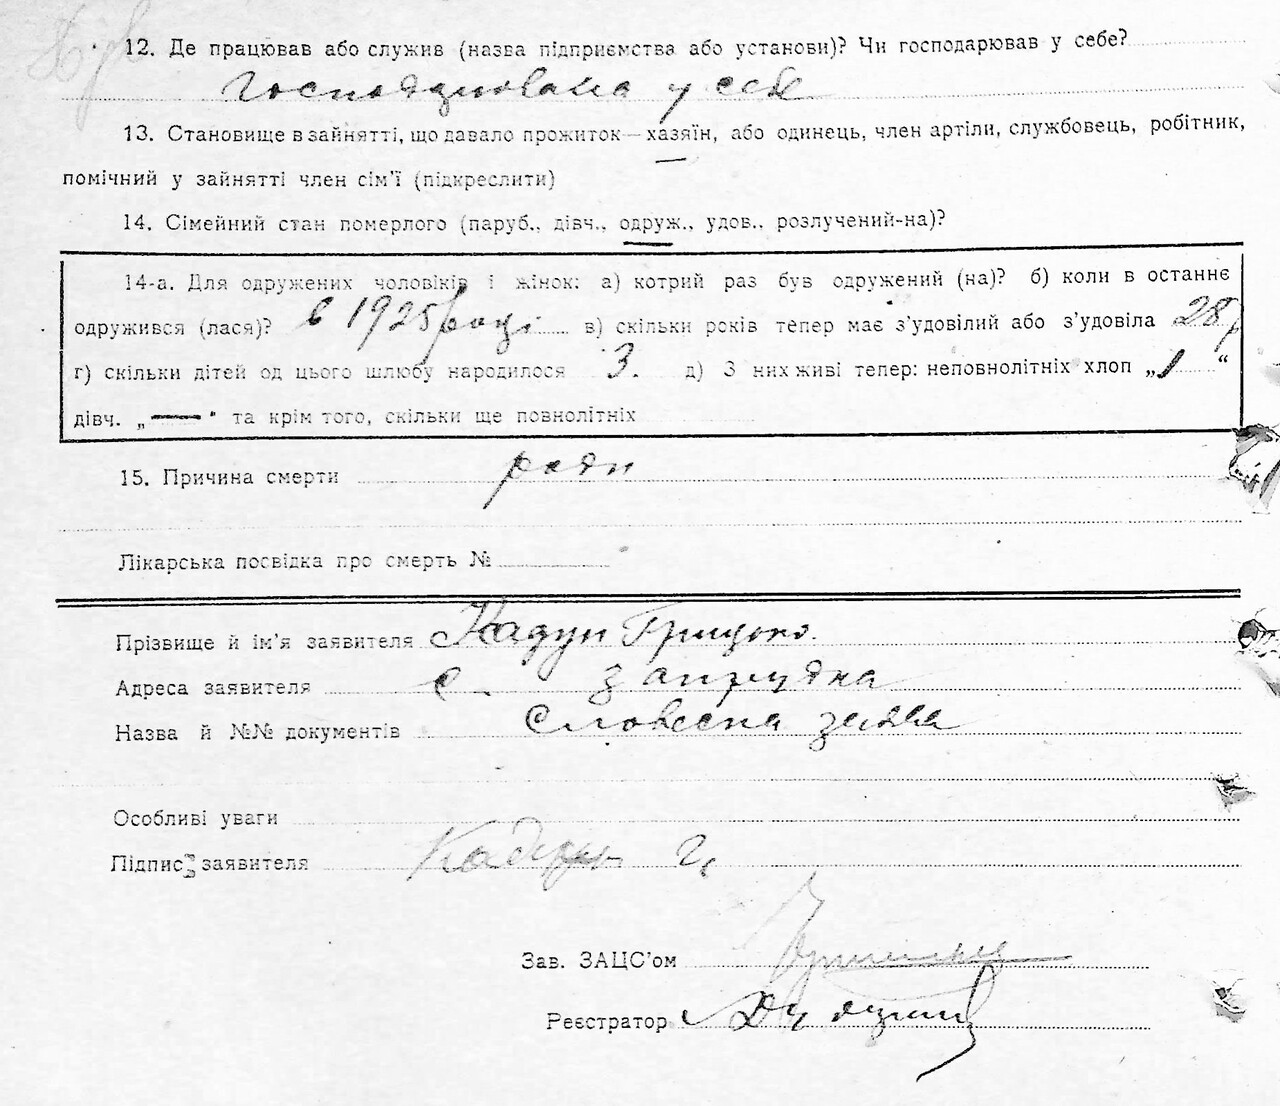 12. Де працював або служив (назва підприємства або установи)? Чи господарював у себе?
господарювала у себе
13. Становище в зайнятті, що давало прожиток — хазяїн, або одинець, член артіли, службовець, робітник,
помічний у зайнятті член сім'ї (підкреслити)
14. Сімейний стан померлого (паруб., дівч., одруж., удов., розлучений-на)?
14-а. Для одружених чоловіків і жінок: а) котрий раз був одружений (на)? б) коли в останнє
одружився (лася)? в 1925 році в) скільки років тепер має з'удовілий або з'удовіла 28 р
г) скільки дітей од цього шлюбу народилося 3. д) З них живі тепер: неповнолітніх хлоп „1“
дівч. „—“ та крім того, скільки ще повнолітніх
15. Причина смерти роди
Лікарська посвідка про смерть №
Прізвище й ім'я заявителя Кадун Грицько.
Адреса заявителя с. Запрудна
Назва й №№ документів Словесна заява
Особливі уваги
Підпис заявителя Кадун Г.
Зав. ЗАЦС'ом
Реєстратор